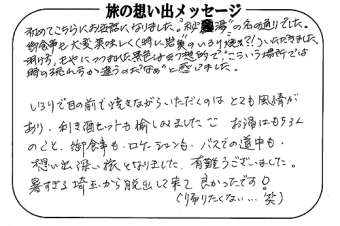 旅の想い出メッセージ
初めてこちらにお世話になりました。"秘湯"の名の通りでした。
御食事も大変美味しく特に岩魚のいろり焼き?!ついただきました。
明け方、もやにつつまれた景色はまるで幻想的で"こういう場所では
時の流れ方が違うのだなぁ"と感じました。
いろりで目の前で焼きながらいただくのはとても風情が
あり、利き酒セットも愉しみました お湯はもちろん
のこと、御食事も、ロケーションも、バスでの道中も、
想い出深い旅となりました。有難うございました。
暑すぎる埼玉から脱出して来て良かったです!
(帰りたくない…笑)